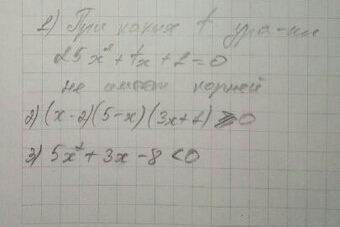 1) При каких t ура-ния
25x² + tx + 1 = 0
не имеет корней
2) (x - 2)(5 - x)(3x + 1) ≥ 0
3) 5x² + 3x - 8 < 0